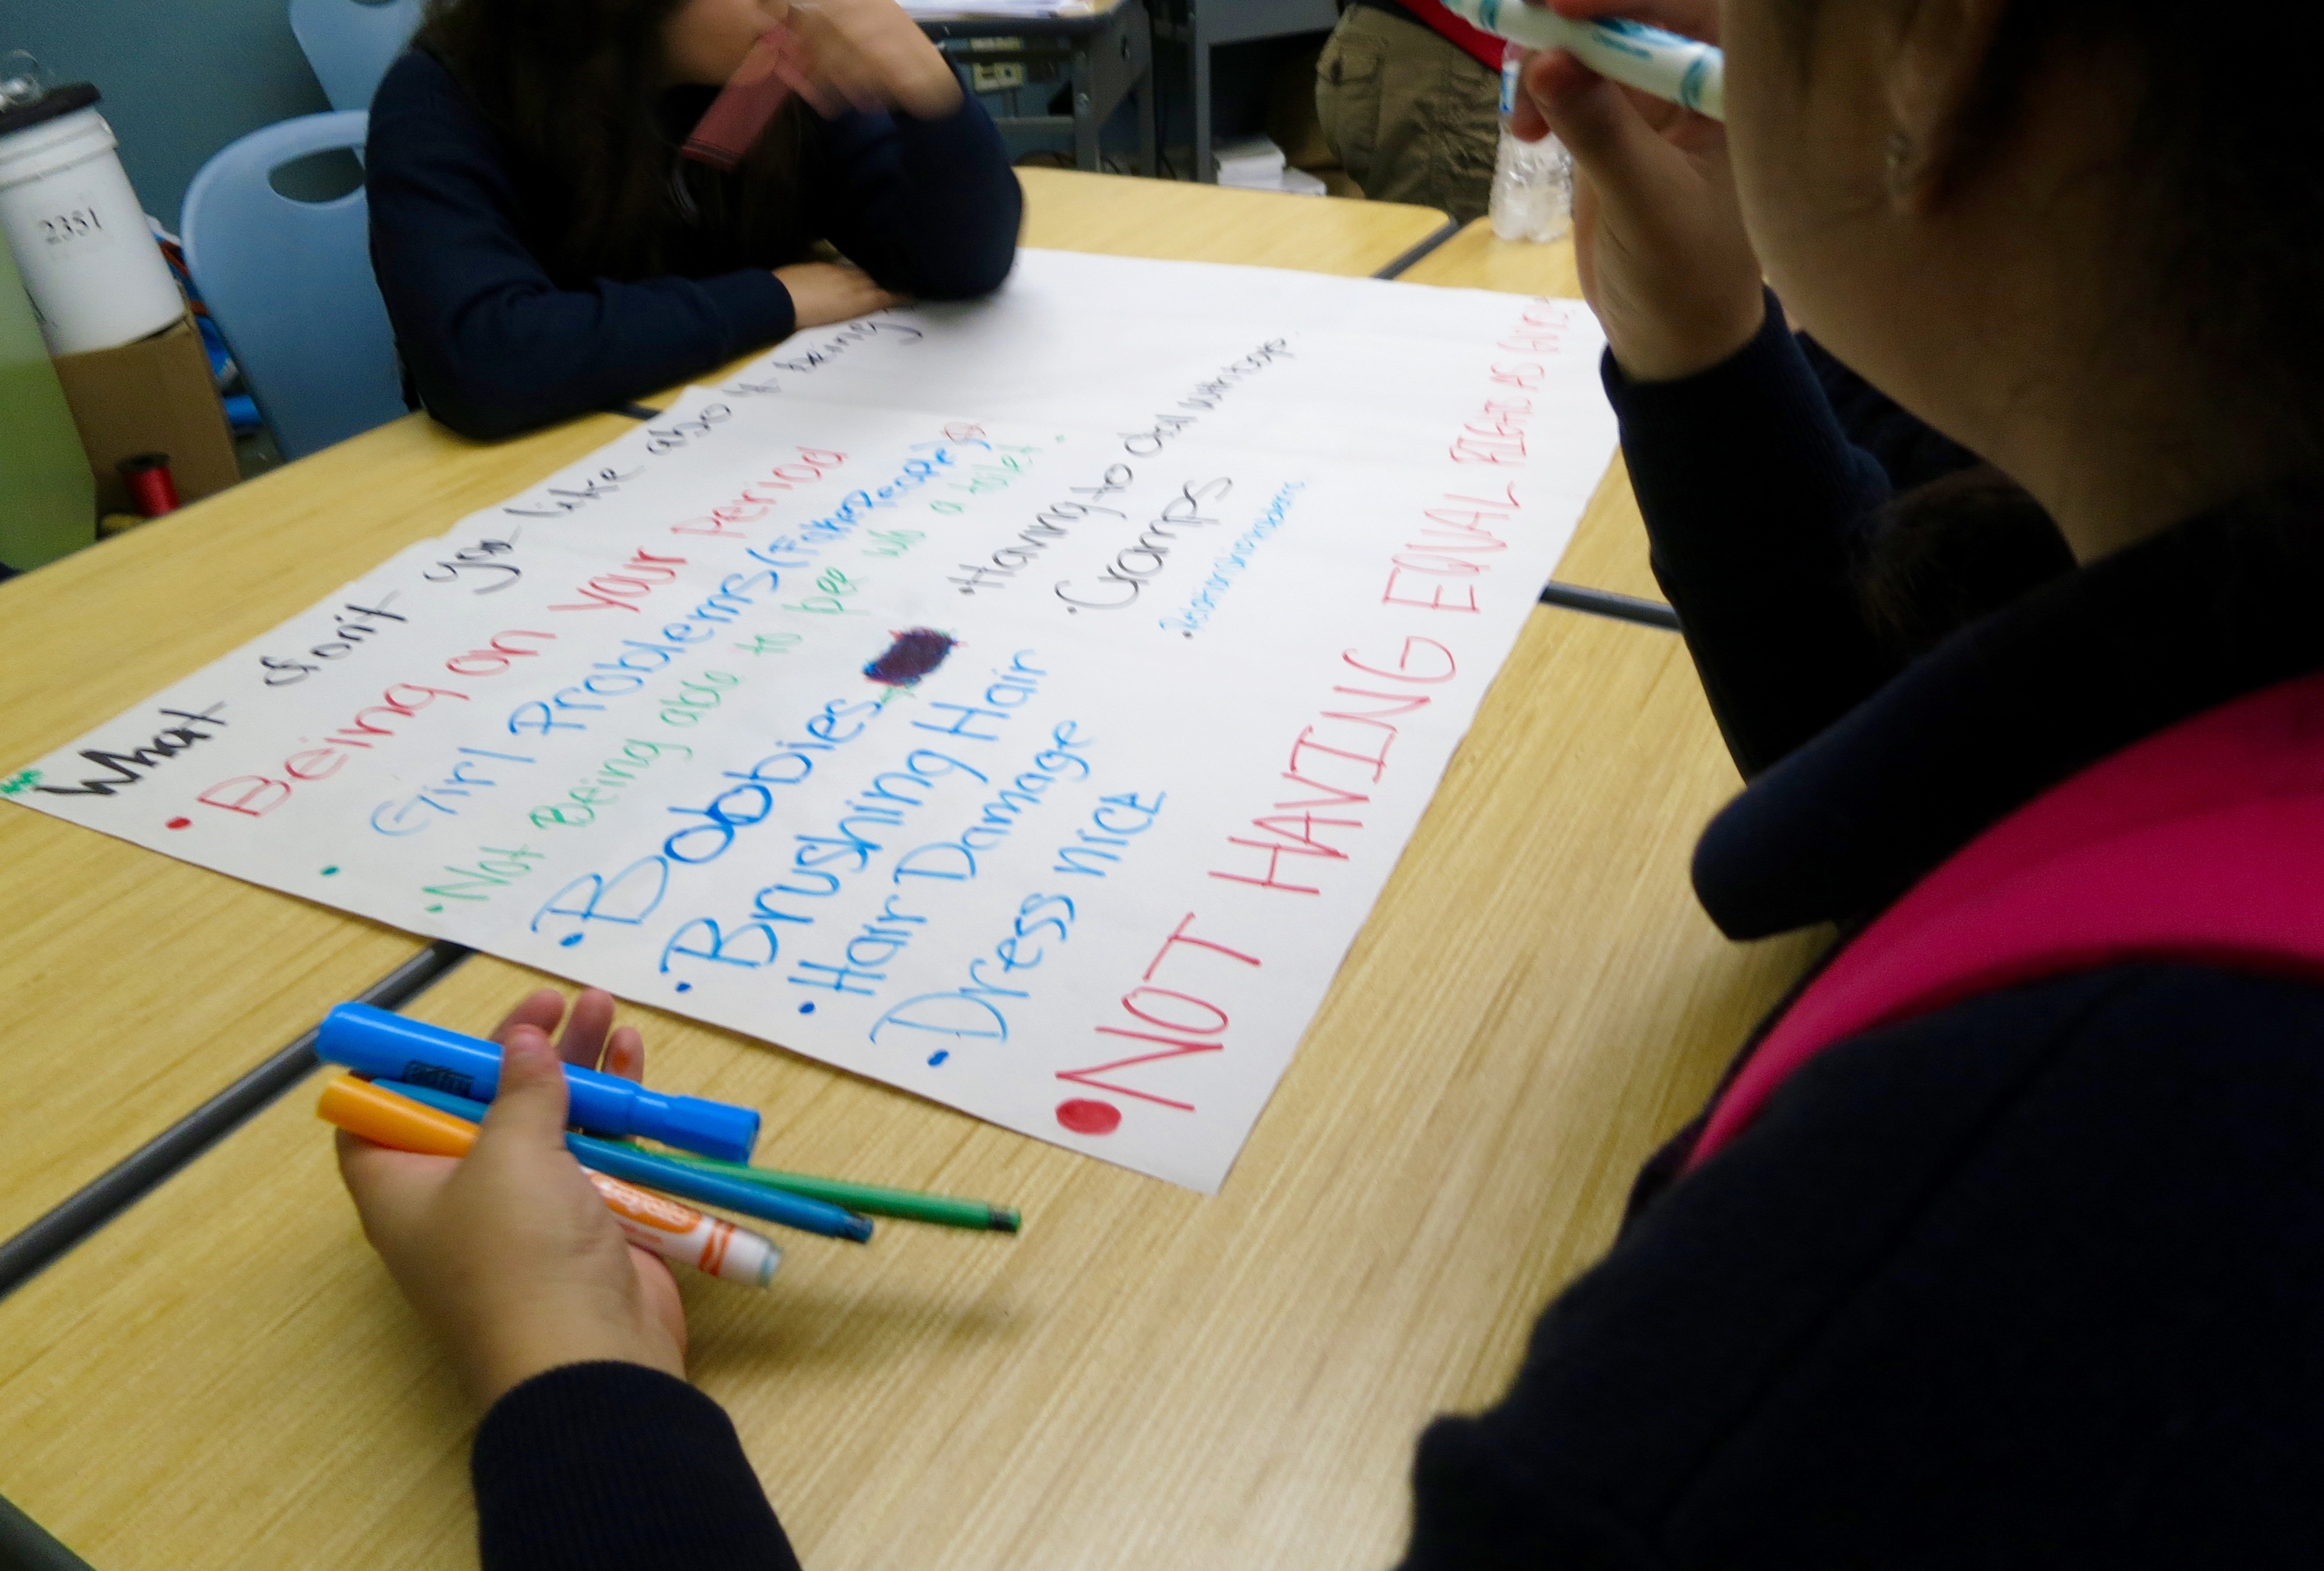 What don't you like about being
• Being on your Period
• Girl Problems (Fake People)
• Not Being able to pee w/o a toilet.
• Boobies
• Brushing Hair
• Hair Damage
• Dress nice
• NOT HAVING EQUAL RIGHTS AS
• Having to deal with boys.
• Cramps
2351